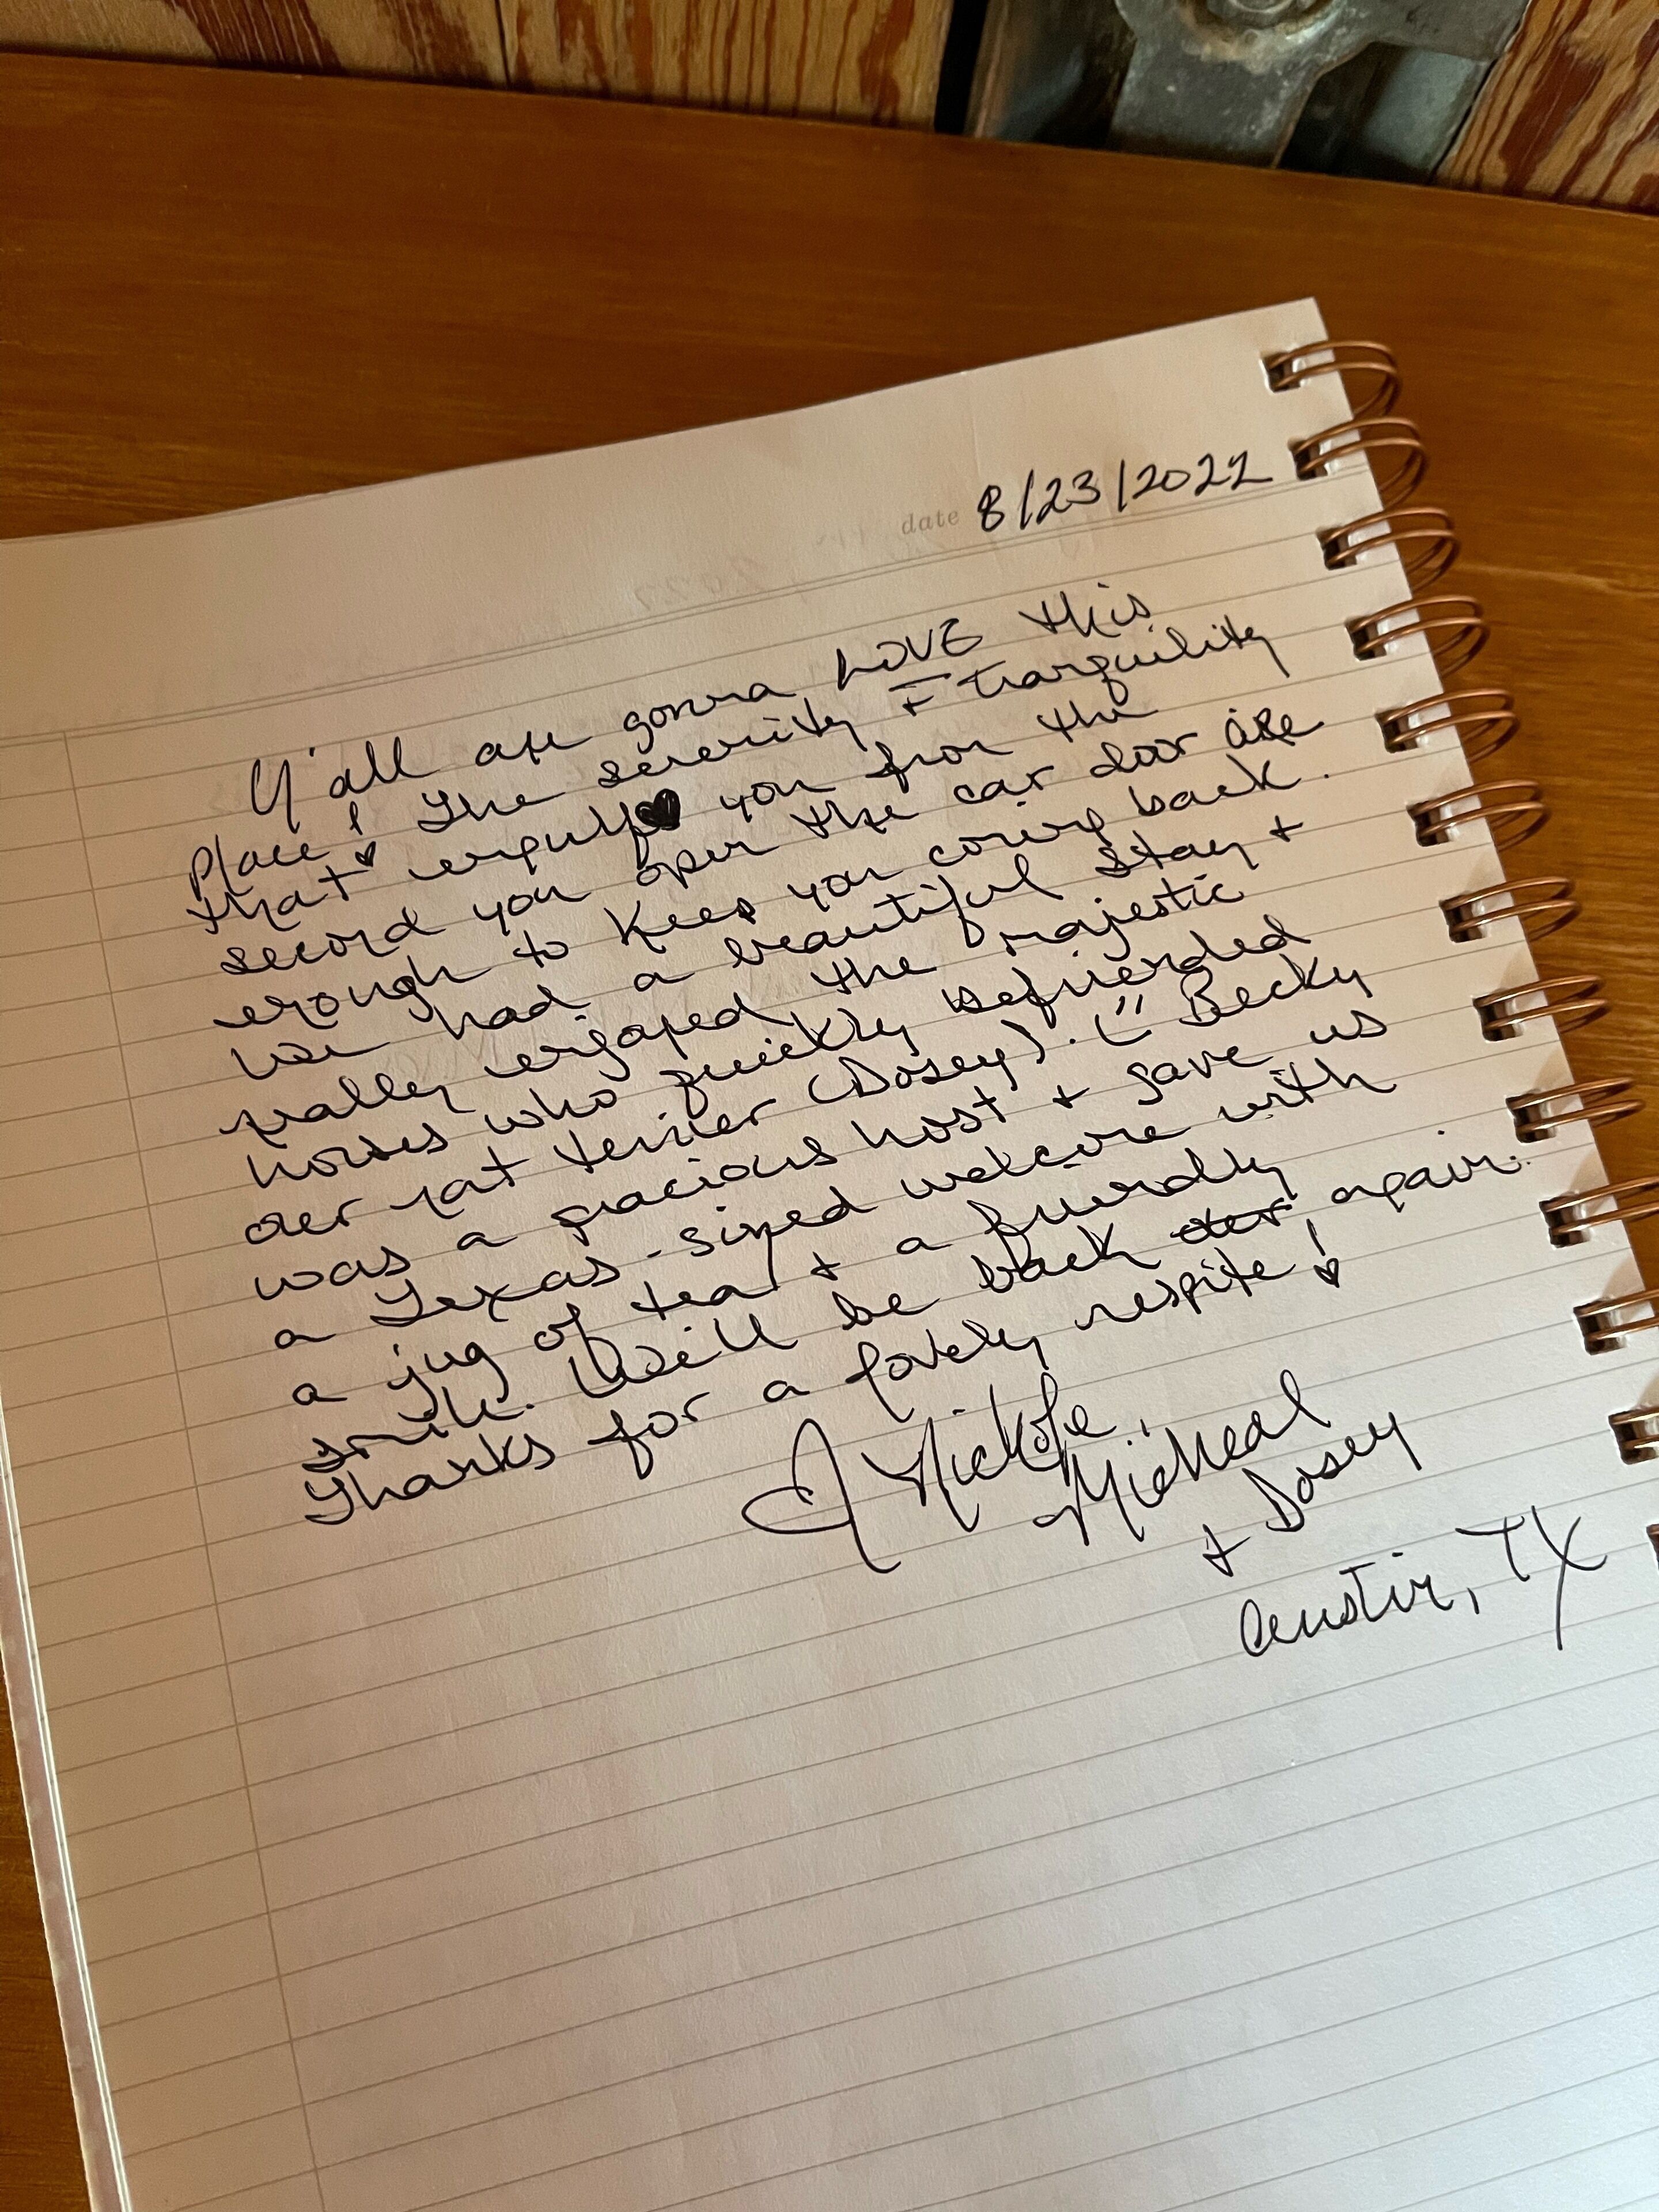 date 8/23/2022
Y'all are gonna LOVE this
place! The serenity + tranquility
that engulfs you from the
second you open the car door are
enough to keep you coming back.
We had a beautiful stay +
really enjoyed the majestic
horses who quickly befriended
our rat terrier (Dosey). Becky
was a gracious host + gave us
a Texas-sized welcome with
a jug of tea + a friendly
smile. We'll be back again.
Thanks for a lovely respite!
Nickole,
Micheal
+ Dosey
Austin, TX